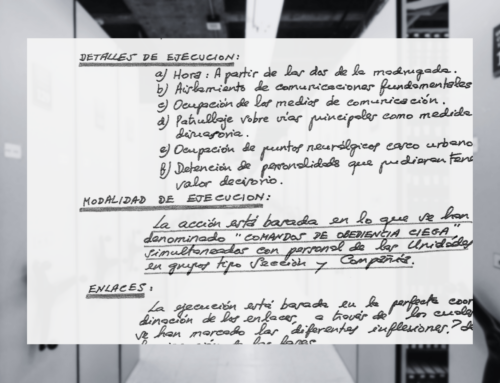 DETALLES DE EJECUCION:
a) Hora: A partir de las dos de la madrugada.
b) Aislamiento de comunicaciones fundamentales
c) Ocupación de los medios de comunicación.
d) Patrullaje sobre vías principales como medida
disuasoria.
e) Ocupación de puntos neurálgicos casco urbano
f) Detención de personalidades que pudieran tene
valor decisorio.
MODALIDAD DE EJECUCION:
La acción está basada en lo que se han
denominado "COMANDOS DE OBEDIENCIA CIEGA",
simultaneados con personal de las Unidades
en grupos tipo Sección y Compañía.
ENLACES:
La ejecución está basada en la perfecta coor
dinación de los enlaces, a través de los cuales
se han marcado las diferentes inflexiones? de